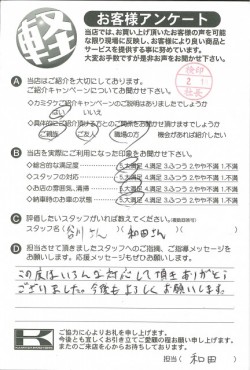 軽
お客様アンケート
当店では、お買い上げ頂いたお客様の声を可能
な限り現場に反映し、お客様により良い商品と
サービスを提供する事に努めています。
大変お手数ですが是非お声をお聞かせ下さい。
検印
社長
A 当店はご紹介を大切にしております。
ご紹介キャンペーンについてお聞かせ下さい。
・カミタケご紹介キャンペーンのご説明はありましたでしょうか
はい いいえ
・具体的にご紹介頂ける方とのご関係をお聞かせ頂けますでしょうか
ご親族 ご友人 職場の方 機会があれば紹介したい
B 当店を実際にご利用になった印象をお聞かせ下さい。
・総合的な満足度 5.大満足 4.満足 3.ふつう 2.やや不満 1.不満
・スタッフの対応 5.大満足 4.満足 3.ふつう 2.やや不満 1.不満
・お店の雰囲気、清掃 5.大満足 4.満足 3.ふつう 2.やや不満 1.不満
・納車時のお車の状態 5.大満足 4.満足 3.ふつう 2.やや不満 1.不満
C 評価したいスタッフがいれば教えてください。(複数回答可)
スタッフ名( 谷川さん )( 和田さん )
D 担当させて頂きましたスタッフへのご指摘、ご指導メッセージを
お願いします。応援メッセージもお待ちしております。
この度はいろんな対応して頂きありがとう
ございました。今後もよろしくお願いします。
K
ご協力に心よりお礼を申し上げます。
今後とも宜しくお引き立てご愛顧の程お願い申し上げます。
またのご来店を心からお待ちしております。
担当( 和田 )